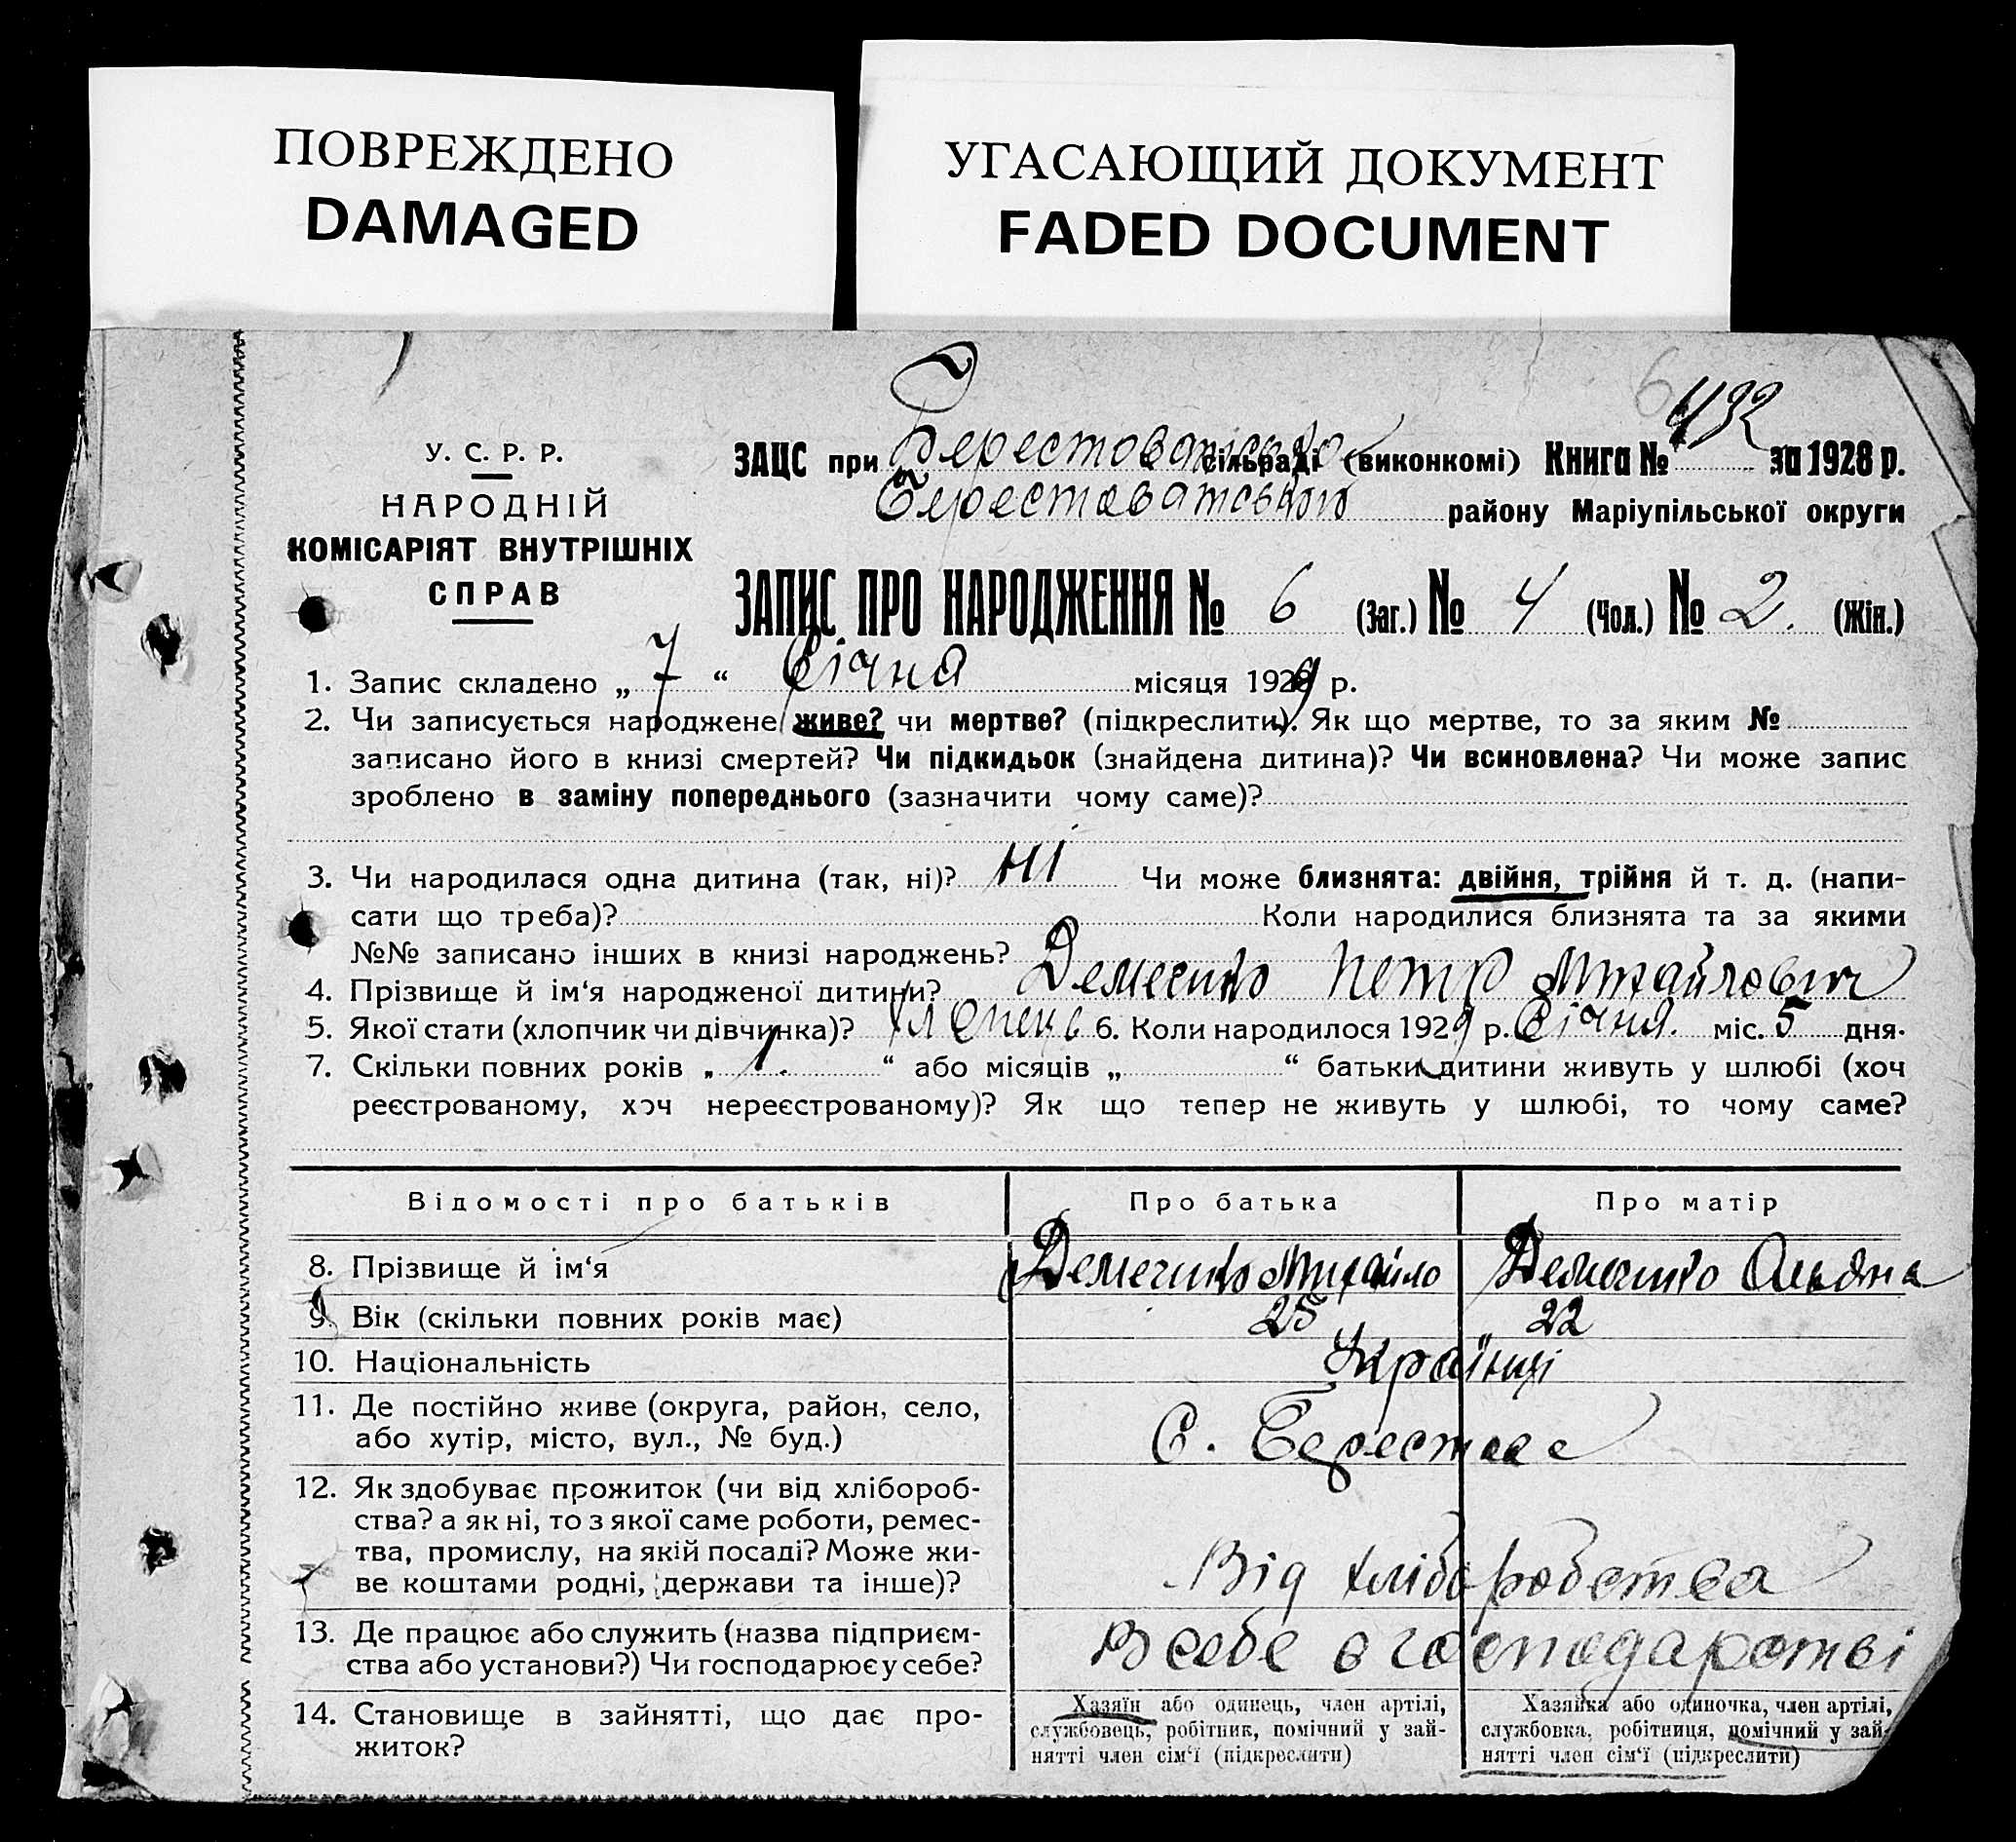 ПОВРЕЖДЕНО
DAMAGED
УГАСАЮЩИЙ ДОКУМЕНТ
FADED DOCUMENT
6
У. С. Р. Р.
НАРОДНІЙ
КОМІСАРІЯТ ВНУТРІШНІХ
СПРАВ
ЗАЦС при сільраді (виконкомі) Книга № 432 за 1928 р.
району Маріупільської округи
ЗАПИС ПРО НАРОДЖЕННЯ № 6 (Заг.) № 4 (Чол.) № 2. (Жін.)
1. Запис складено „ 7 “ Січня місяця 1929 р.
2. Чи записується народжене живе? чи мертве? (підкреслити). Як що мертве, то за яким №
записано його в книзі смертей? Чи підкидьок (знайдена дитина)? Чи всиновлена? Чи може запис
зроблено в заміну попереднього (зазначити чому саме)?
3. Чи народилася одна дитина (так, ні)? ні Чи може близнята: двійня, трійня й т. д. (напи-
сати що треба)? Коли народилися близнята та за якими
№№ записано інших в книзі народжень?
4. Прізвище й ім‘я народженої дитини? Петр Михайлович
5. Якої стати (хлопчик чи дівчинка)? 6. Коли народилося 1929 р. Січня. міс. 5 дня.
7. Скільки повних років „ 1. “ або місяців „ “ батьки дитини живуть у шлюбі (хоч
реєстрованому, хоч нереєстрованому)? Як що тепер не живуть у шлюбі, то чому саме?
Відомості про батьків Про батька Про матір
8. Прізвище й ім‘я Михайло
9. Вік (скільки повних років має) 25 22
10. Національність Українці
11. Де постійно живе (округа, район, село,
або хутір, місто, вул., № буд.) С.
12. Як здобуває прожиток (чи від хлібороб-
ства? а як ні, то з якої саме роботи, ремес-
тва, промислу, на якій посаді? Може жи-
ве коштами родні, держави та інше)? Від хліборобства
13. Де працює або служить (назва підприєм-
ства або установи?) Чи господарює у себе? В себе в господарстві
14. Становище в зайнятті, що дає про-
житок?
Хазяїн або одинець, член артілі,
службовець, робітник, помічний у зай-
нятті член сім‘ї (підкреслити)
Хазяйка або одиночка, член артілі,
службовка, робітниця, помічний у зай-
нятті член сім‘ї (підкреслити)